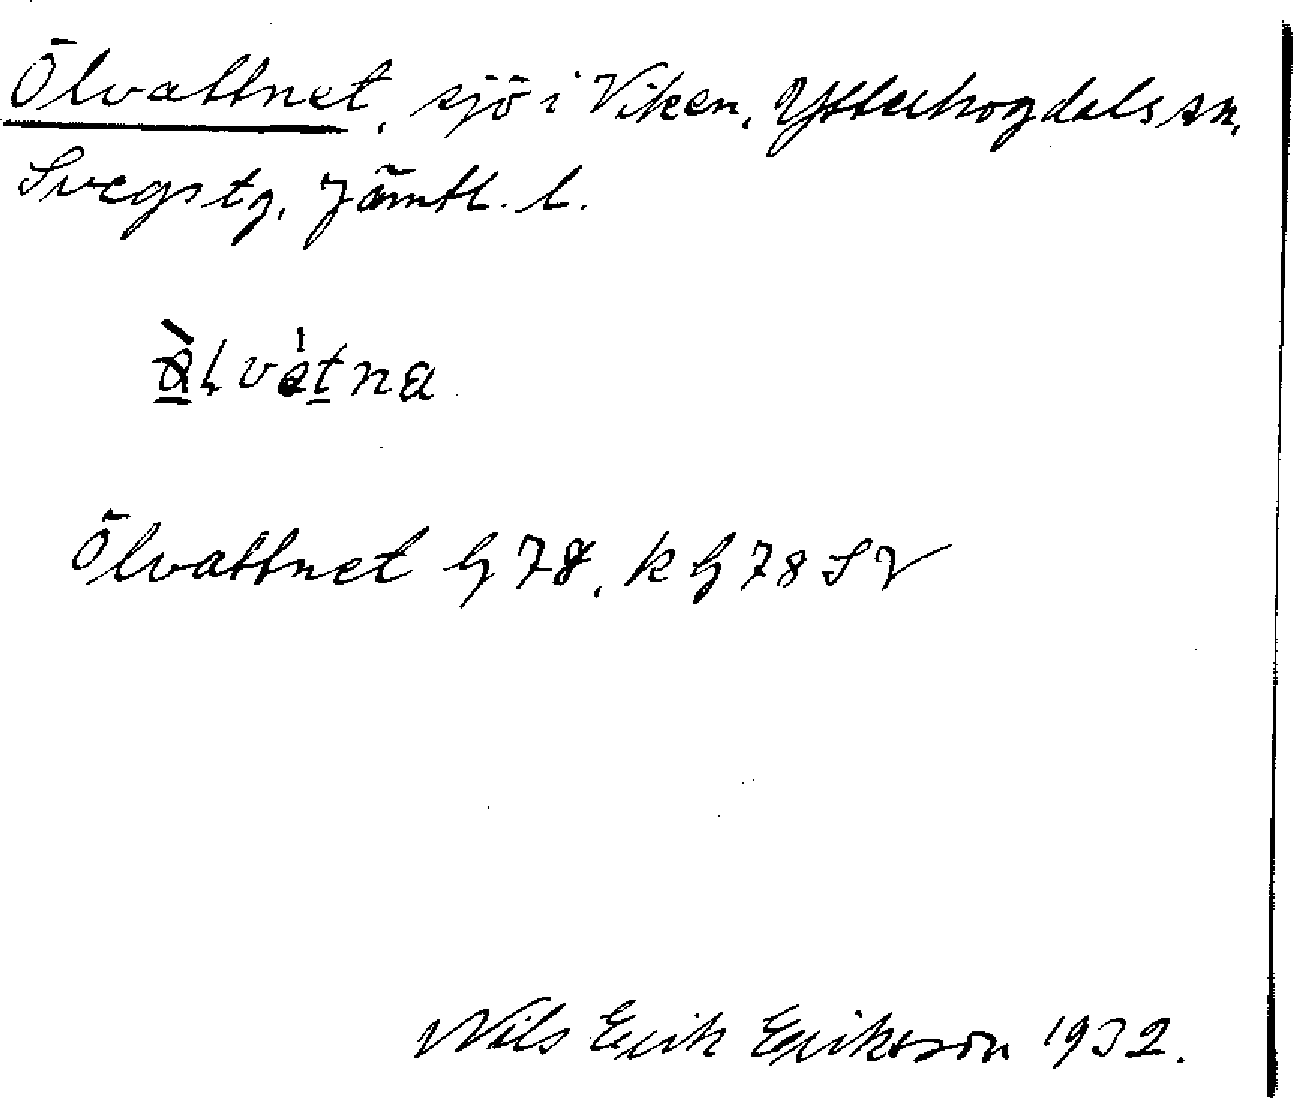 Ölvattnet, sjö i Viken, Ytterhogdals sn,
Svegs tg, Jämtl. l.
Ölvattnet G 78, k G 78 SV
Nils Erik Eriksson 1932.